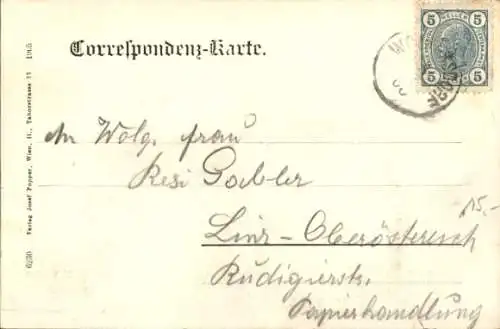 Correspondenz-Karte.
5 HELLER 5
5 5
An Wolg. Frau
Resi Gabler
Linz-Oberösterreich
Rudigierstr.
Papierhandlung
15.-
6230 Verlag Josef Popper, Wien, II., Taborstrasse 11 1905